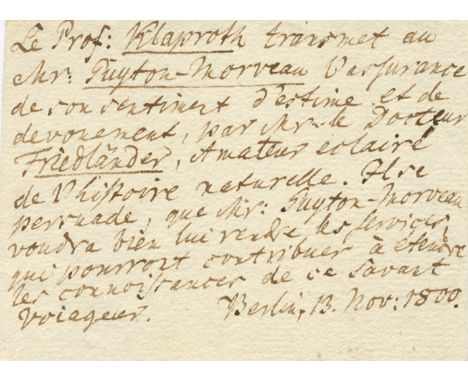 Le Prof: Klaproth transmet au
Mr: Guyton-Morveau l'assurance
de son sentiment d'estime et de
devouement, par Mr. le Docteur
Friedländer, Amateur eclairé
de l'histoire naturelle. Il se
persuade, que Mr: Guyton-Morveau
voudra bien lui rendre les services,
qui pourront contribuer à etendre
les connoissances de ce savant
voiageur. Berlin, 13. Nov: 1800.